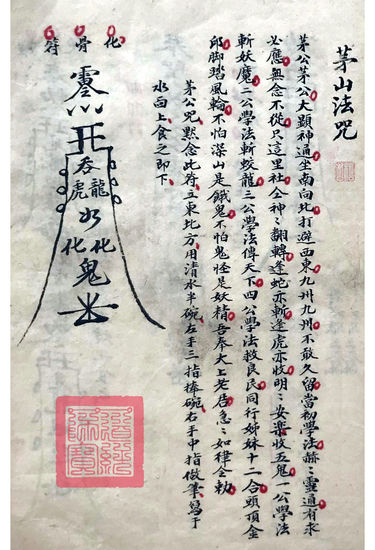 茅山法咒
茅公茅公大顯神通坐南向北打避西東九州九州不敢久留當初學法赫〻靈通有求
必應無念不從只這里社令神〻翻轉逢蛇亦斬逢虎亦收明〻安樂收五鬼一公學法
斬妖魔二公學法斬蛟龍三公學法傳天下四公學法救良民同行姊妹十二合頭頂金
邱脚踏風輪不怕深山是餓鬼不怕鬼怪是妖精吾奉太上老君急〻如律令勅
茅公咒默念此符立東北方用清水半碗左手三指捧碗右手中指做筆寫于
水面上食之即下
化骨符
吞龍
虎
水
化化
鬼